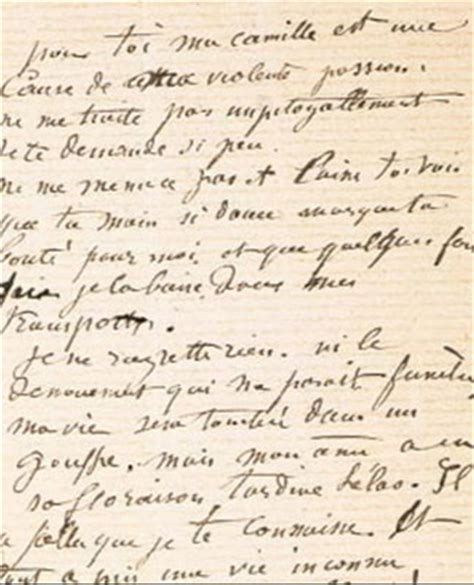 pour toi ma camille est une
cause de violente passion.
ne me traite pas impitoyablement
je te demande si peu.
ne me menace pas et laisse toi voir
que ta main si douce marque ta
bonté pour moi et que quelques fois
je la baise dans mes
transports.
Je ne regrette rien. ni le
denouement qui me parait funèbre
ma vie sera tombée dans un
gouffre. mais mon ame a eu
sa floraison tardive hélas. Il
a fallu que je te connaisse. Et
tout a pris une vie inconnue